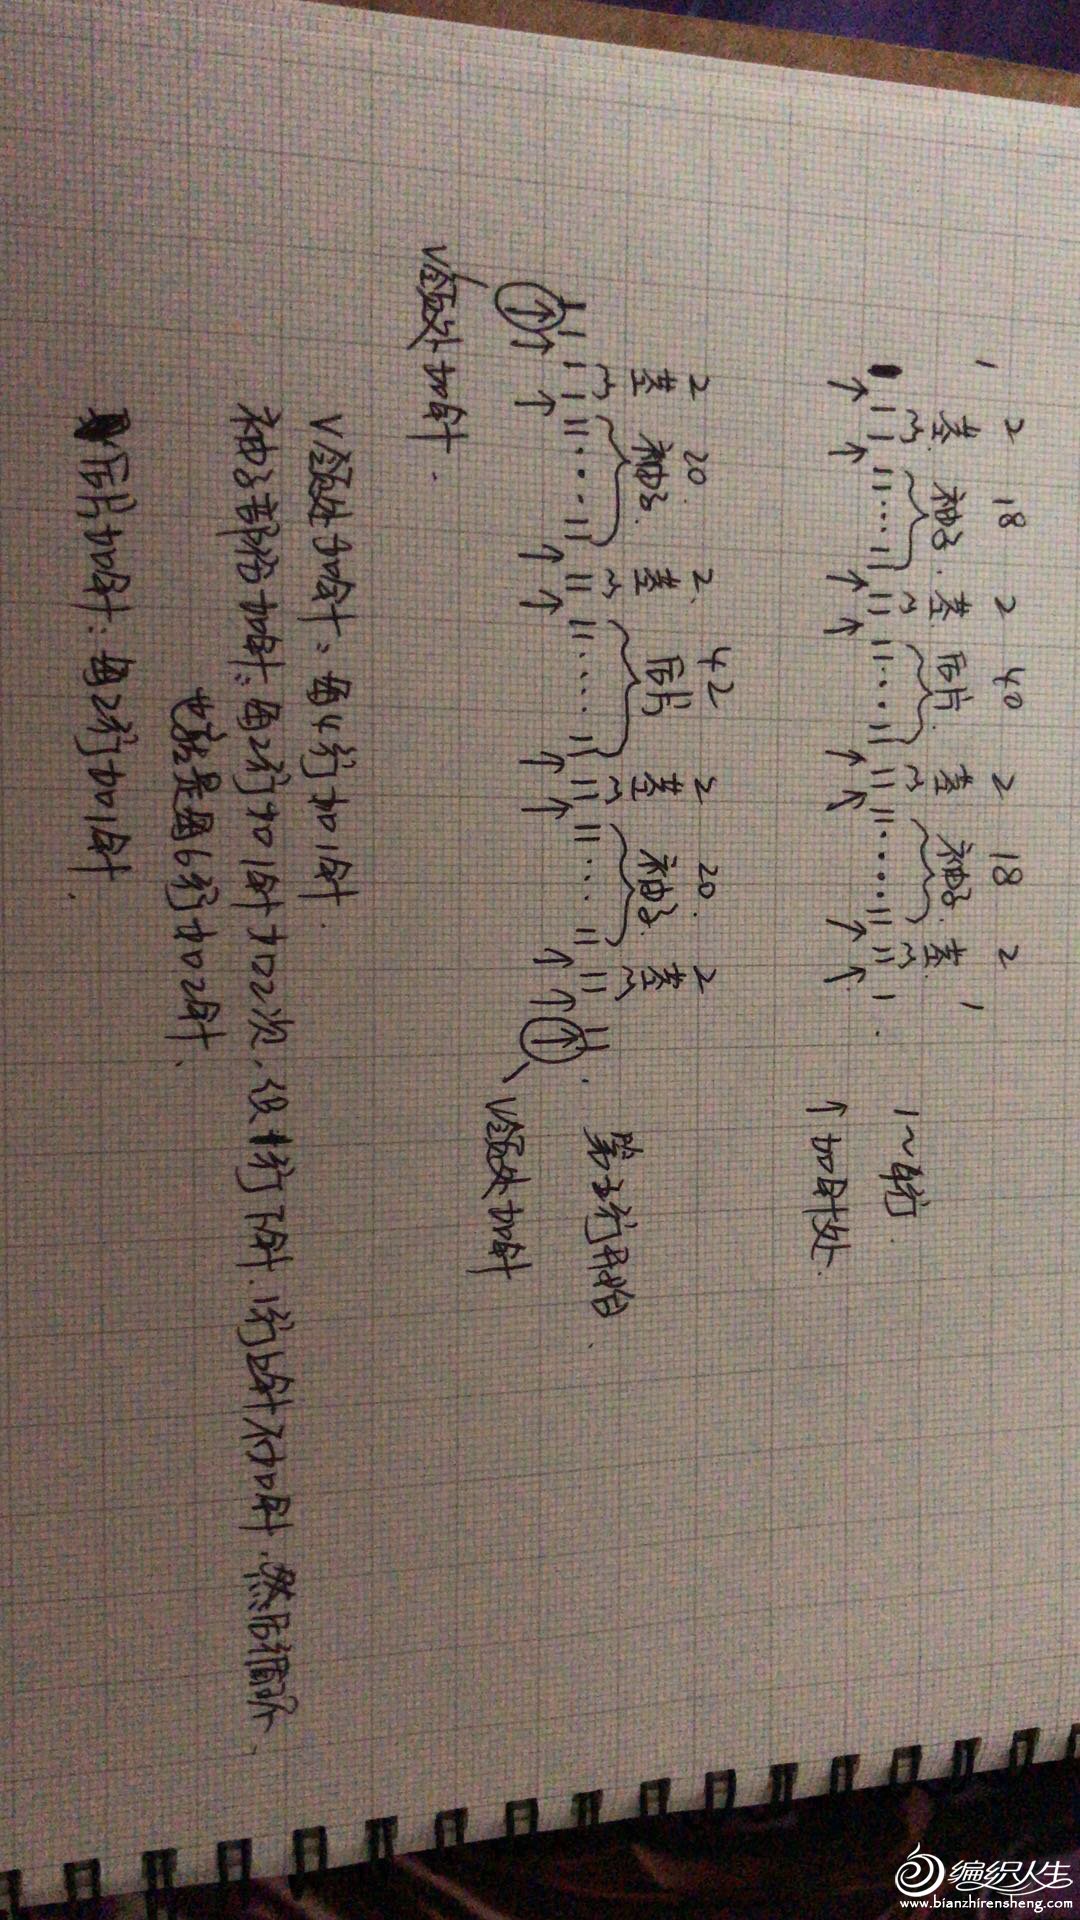 1 2 18 2 40 2 18 2 1
茎 袖子 茎 后片 茎 袖子 茎
1~4行
↑加针处
2 20 2 42 2 20 2
茎 袖子 茎 后片 茎 袖子 茎
第5行开始
V领处加针
V领处加针
V领处加针：每4行加1针
袖子部份加针：每2行加1针加2次.织1行下针.1行上针不加针.然后循环
也就是每6行加2针
后片加针：每2行加1针
编织人生
www.bianzhirensheng.com